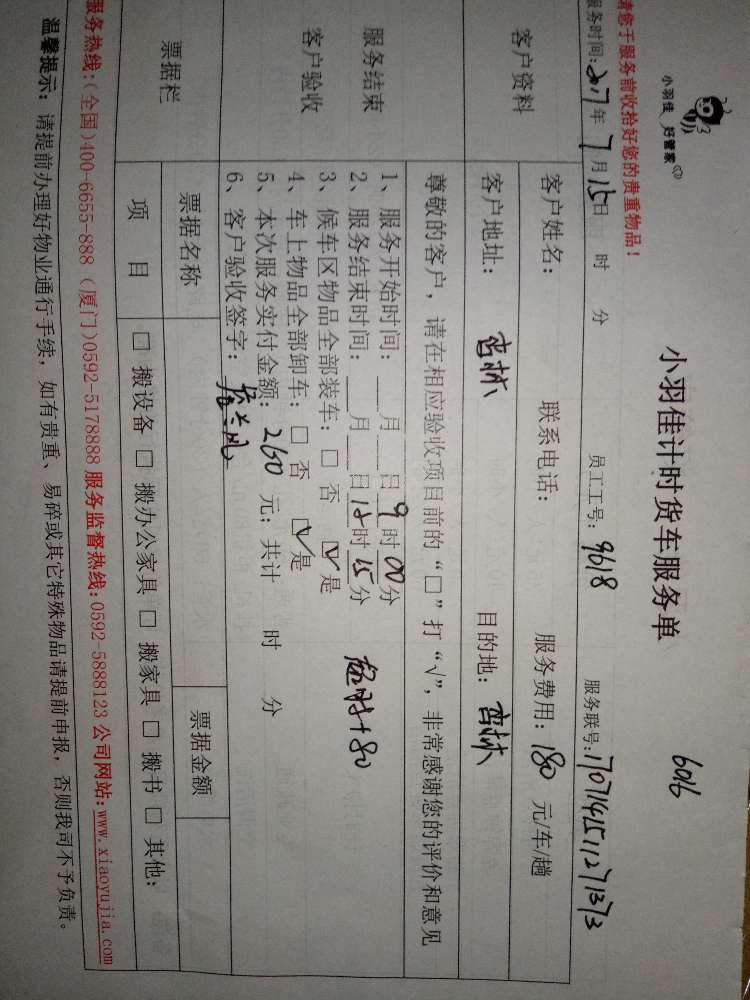 小羽佳 好管家
小羽佳计时货车服务单
6016
请您于服务前收拾好您的贵重物品！
服务时间：2017年7月15日 时 分 员工工号：9618 服务联号：1707141511271373
客户资料
客户姓名： 联系电话： 服务费用：180 元/车/趟
客户地址：杏林 目的地：杏林
尊敬的客户，请在相应验收项目前的“□”打“√”，非常感谢您的评价和意见
服务结束
客户验收
1、服务开始时间：___月___日9时00分
2、服务结束时间：___月___日12时15分 超时+80
3、候车区物品全部装车：□ 否 ☑ 是
4、车上物品全部卸车：□ 否 ☑ 是
5、本次服务实付金额：260 元；共计 时 分
6、客户验收签字：
票据栏
票据名称 票据金额
项 目 □ 搬设备 □ 搬办公家具 □ 搬家具 □ 搬书 □ 其他：
服务热线：(全国)400-6655-888 (厦门)0592-5178888 服务监督热线：0592-5888123 公司网站：www.xiaoyujia.com
温馨提示：请提前办理好物业通行手续，如有贵重、易碎或其它特殊物品请提前申报，否则我司不予负责。